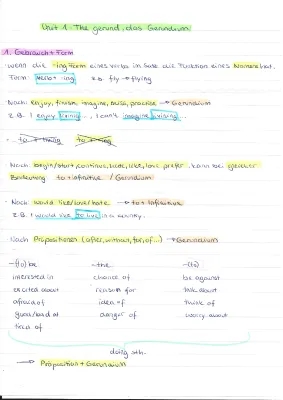 Unit 1. The gerund, das Gerundium
1. Gebrauch + Form
wenn die -ing Form eines Verbs im Satz die Funktion eines Nomens hat.
Form: Verb + -ing z.B. fly → flying
Nach: enjoy, finish, imagine, miss, practise → Gerundium
z.B. I enjoy living ... , I can't imagine living ...
to + living to + living
Nach begin/start, continue, hate, like, love, prefer kann bei gleicher
Bedeutung to + infinitive / Gerundium
Nach would like/love/hate → to + infinitive
z.B. I would like to live in a
Nach Präpositionen (after, without, for, of...) → Gerundium
-(to) be -the -(to)
interested in chance of be against
excited about reason for talk about
afraid of idea of think of
good/bad at danger of worry about
tired of
doing sth.
→ Präposition + Gerundium